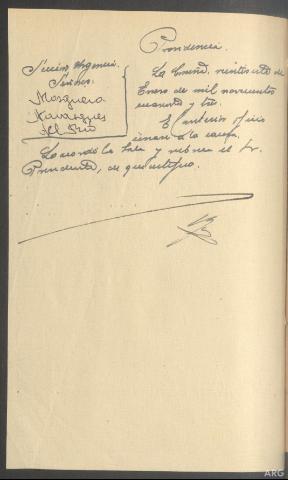 Providencia.
Sección Urgencia.
Señores.
Mosquera
Navarques
Del Río
La Coruña, veintisiete de
Enero de mil novecientos
cuarenta y tres.
El anterior oficio
únase a la causa.
Lo acordó la Sala y rubrica el Sr.
Presidente, de que certifico.
ARG